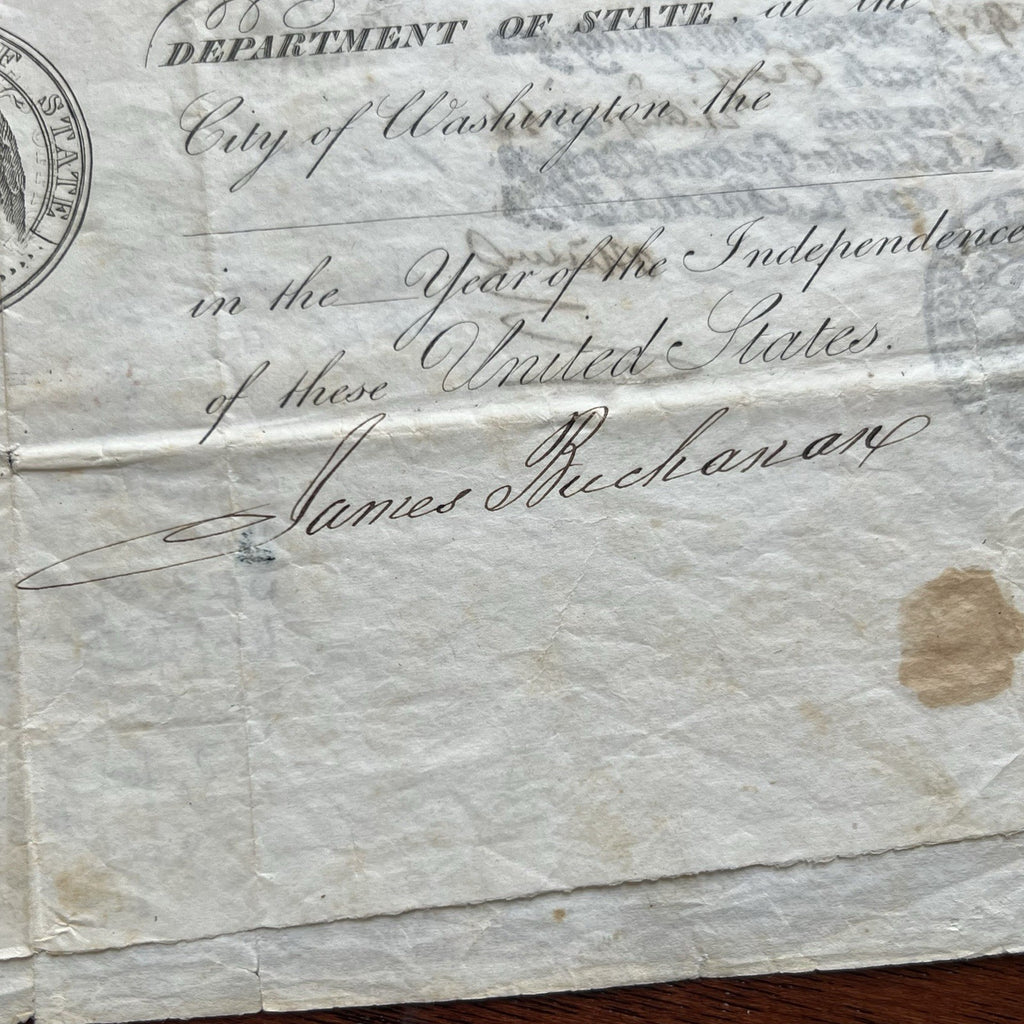 DEPARTMENT OF STATE, at the
City of Washington the
in the Year of the Independence
of these United States.
James Buchanan
STATE